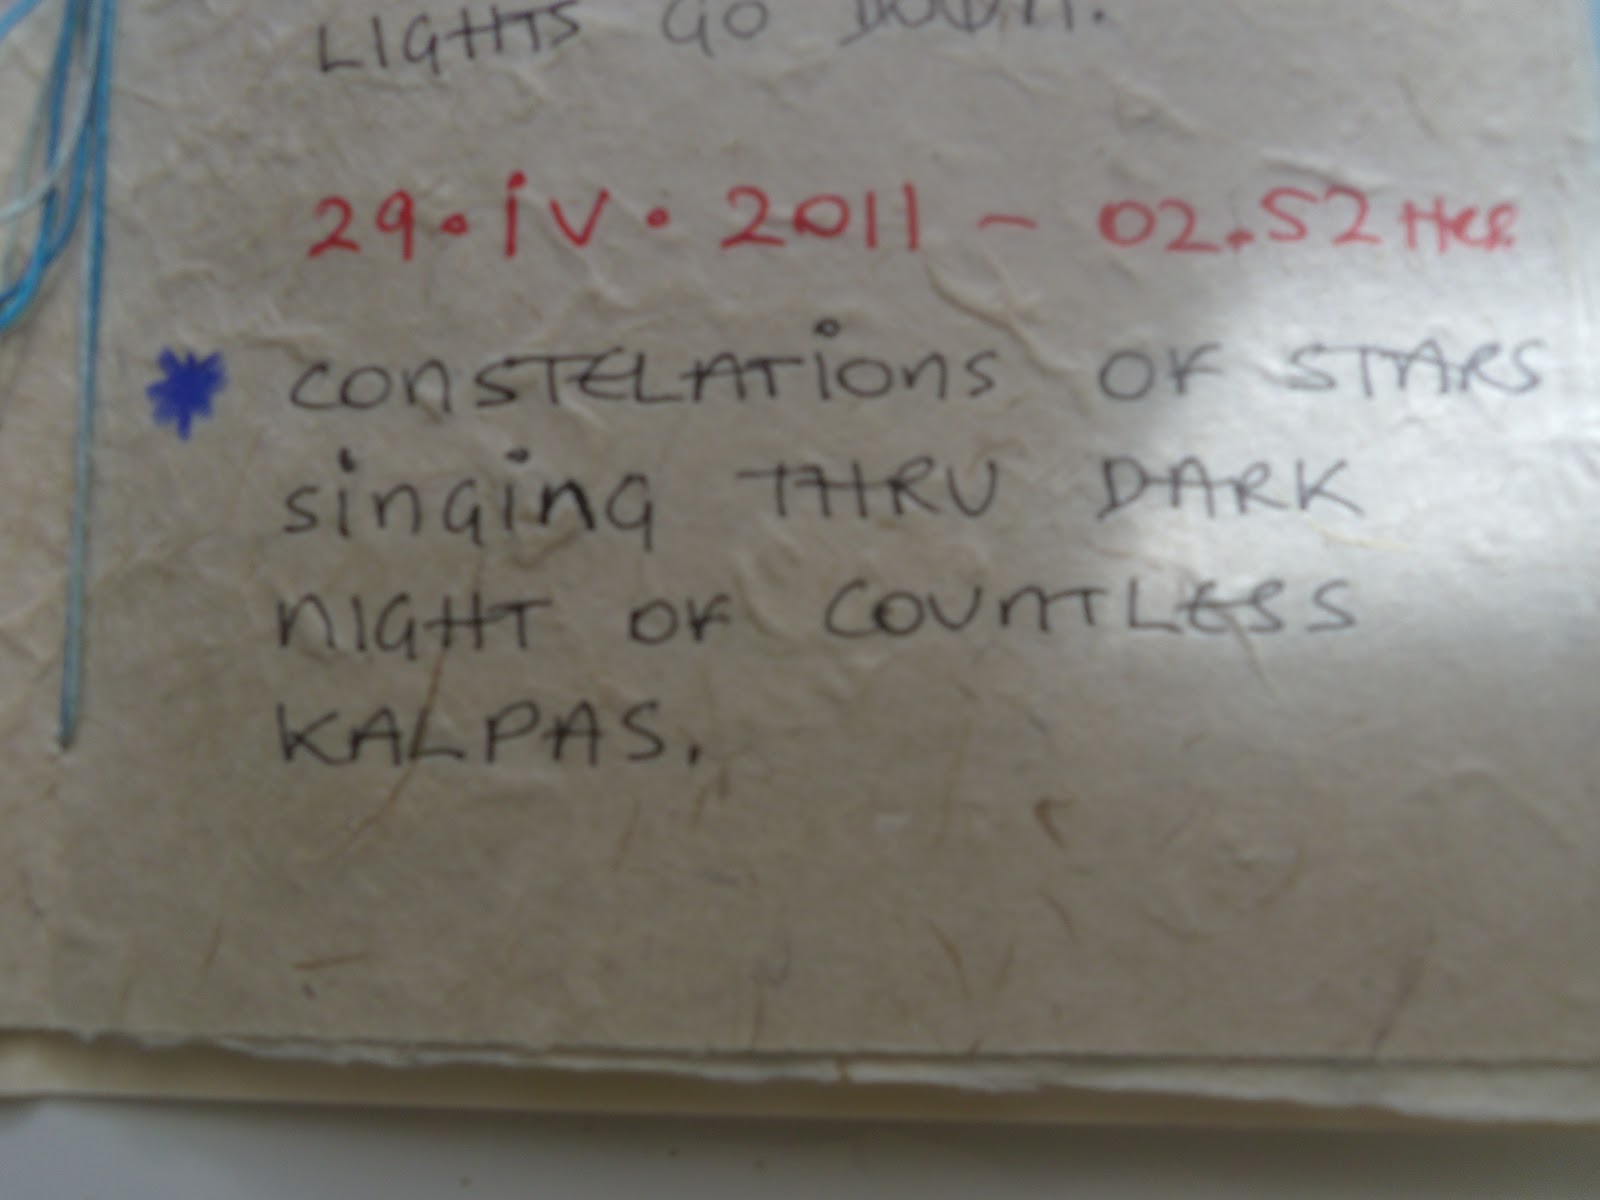 LIGHTS GO DOWN.
29.iv.2011 - 02.52 HRS
* CONSTELATIONS OF STARS
singing THRU DARK
NIGHT OF COUNTLESS
KALPAS.